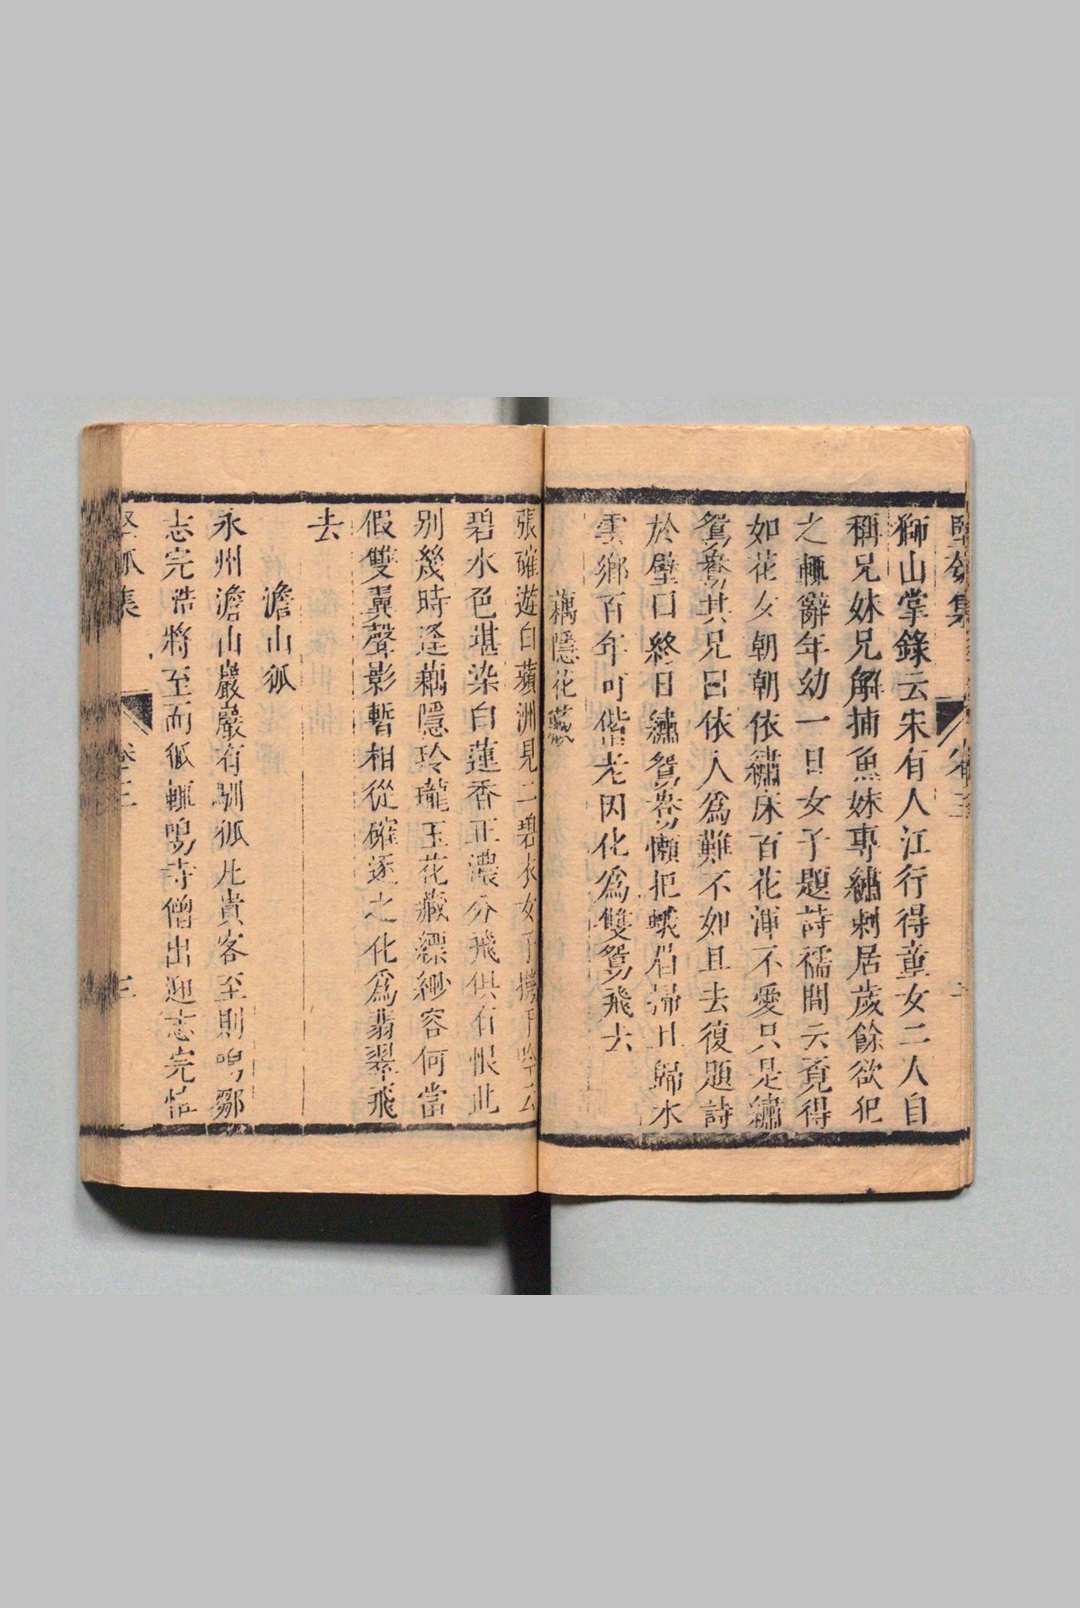 堅瓠集 卷三
獅山掌錄云宋有人江行得童女二人自
稱兄妹兄解捕魚妹專繡刺居歲餘欲犯
之輒辭年幼一日女子題詩襦間云覓得
如花女朝朝依繡床百花渾不愛只是繡
鴛鴦其兄曰依人爲難不如且去復題詩
於壁曰終日繡鴛鴦懶把蛾眉掃且歸水
雲鄉百年可偕老因化爲雙鴛飛去
藕隱花藏
張確遊白蘋洲見二碧衣女子攜手吟云
碧水色堪染白蓮香正濃分飛俱有恨此
別幾時逢藕隱玲瓏玉花藏縹緲容何當
假雙翼聲影暫相從確逐之化爲翡翠飛
去
澹山狐
永州澹山巖巖有馴狐凡貴客至則鳴鄒
志完浩將至而狐輒鳴寺僧出迎志完怪
堅瓠集 卷三 三